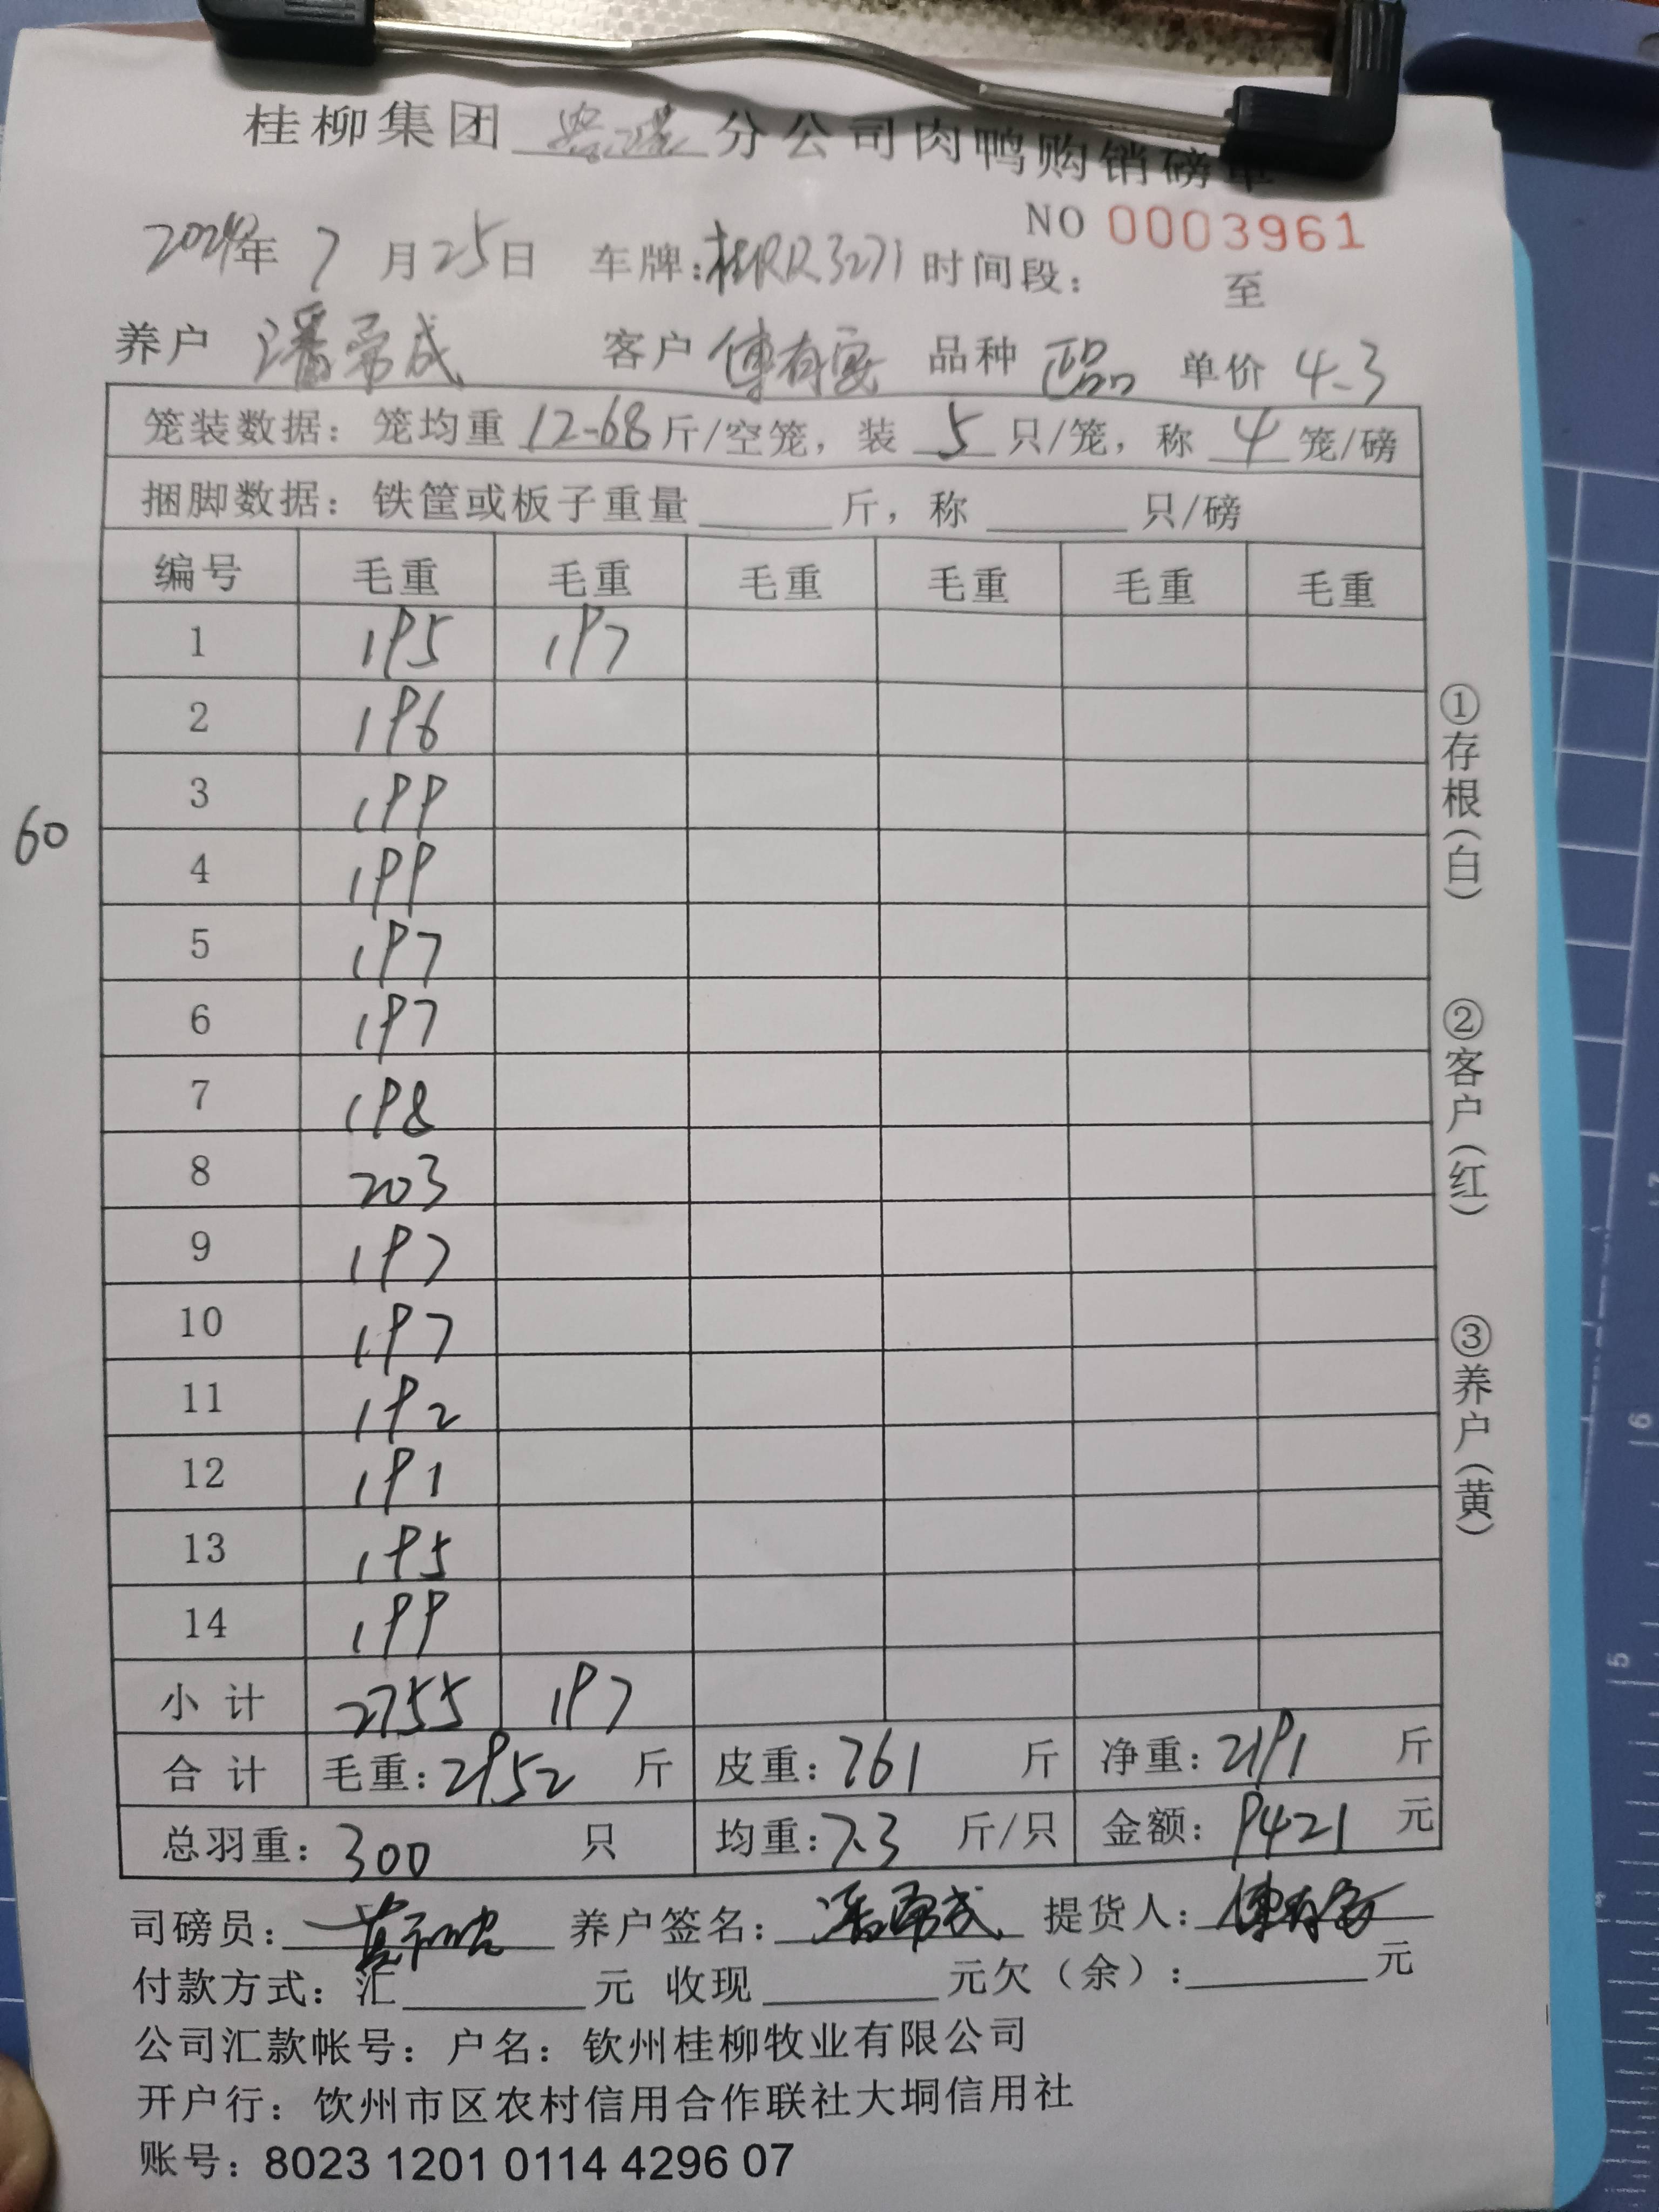 桂柳集团 分公司肉鸭购销磅单
NO 0003961
2024年 7 月 25日 车牌: 时间段: 至
养户 潘常成 客户 傅有 品种 正品 单价 4.3
笼装数据: 笼均重 12-68 斤/空笼, 装 5 只/笼, 称 4 笼/磅
捆脚数据: 铁筐或板子重量 斤, 称 只/磅
编号 毛重 毛重 毛重 毛重 毛重 毛重
1 195 197
2 196
3 199
60
4 199
5 197
6 197
7 198
8 203
9 197
10 197
11 192
12 191
13 195
14 199
小计 2755 197
合计 毛重: 2952 斤 皮重: 761 斤 净重: 2191 斤
总羽重: 300 只 均重: 7.3 斤/只 金额: 9421 元
司磅员: 养户签名: 潘常成 提货人: 傅有
付款方式: 汇 元 收现 元欠(余): 元
公司汇款帐号: 户名: 钦州桂柳牧业有限公司
开户行: 饮州市区农村信用合作联社大垌信用社
账号: 8023 1201 0114 4296 07
①存根(白)
②客户(红)
③养户(黄)
7
6
5